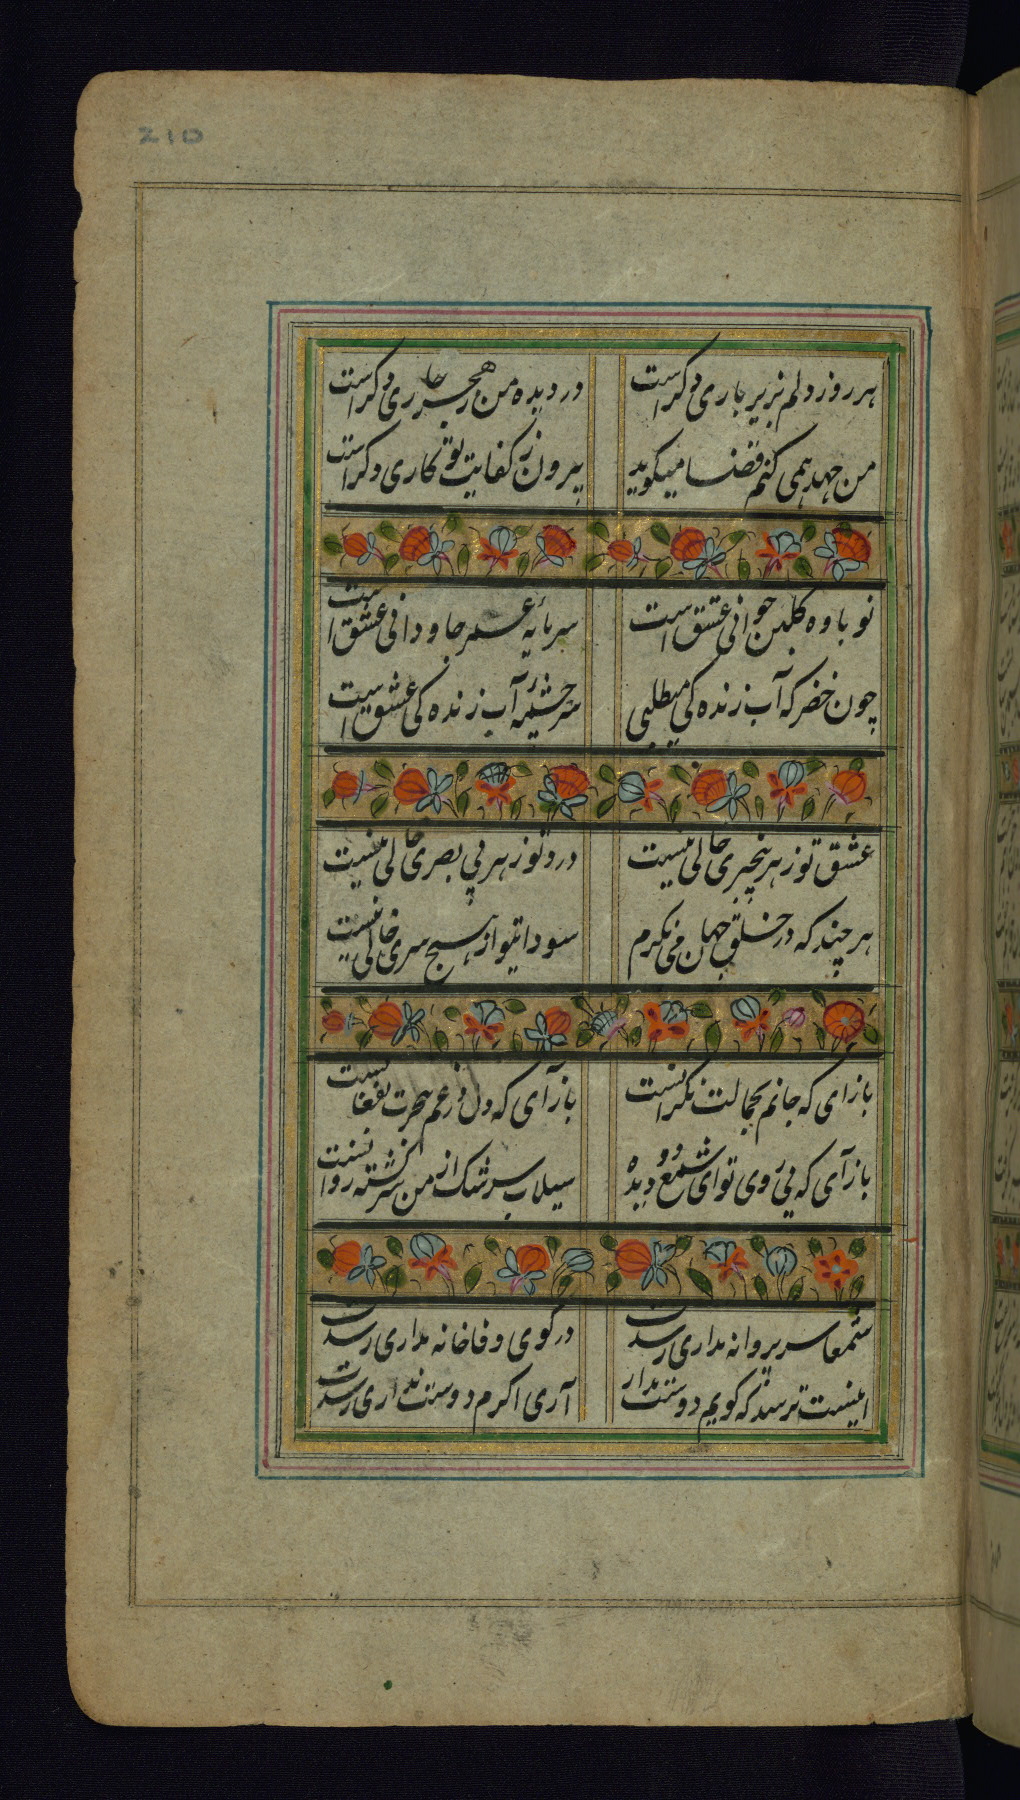 210
هر روز دلم بزیر باری دگراست
در دیده من ز هجر خاری دگراست
من جهد همی کنم قضا میگوید
بیرون ز کفایت تو کاری دگراست
نو باوه گلبن جوانی عشق است
سرمایه عمر جاودانی عشق است
چون خضر که آب زنده گی میطلبی
سرچشمه آب زنده گی عشق است
عشق تو ز هر بیخبری خالی نیست
درد تو ز هر بی بصری خالی نیست
هر چند که در خلق جهان می نگرم
سودایتو از هیچ سری خالی نیست
باز ای که جانم بجمالت نگرانست
باز آی که دل در غم هجرت بفغانست
باز آی که بی روی تو ای شمع دو دیده
سیلاب سرشک از من سرگشته روانست
شمعا سر پروانه نداری
در کوی وفا خانه نداری
که گویم دوست ندار
آری اکرم دوست نداری